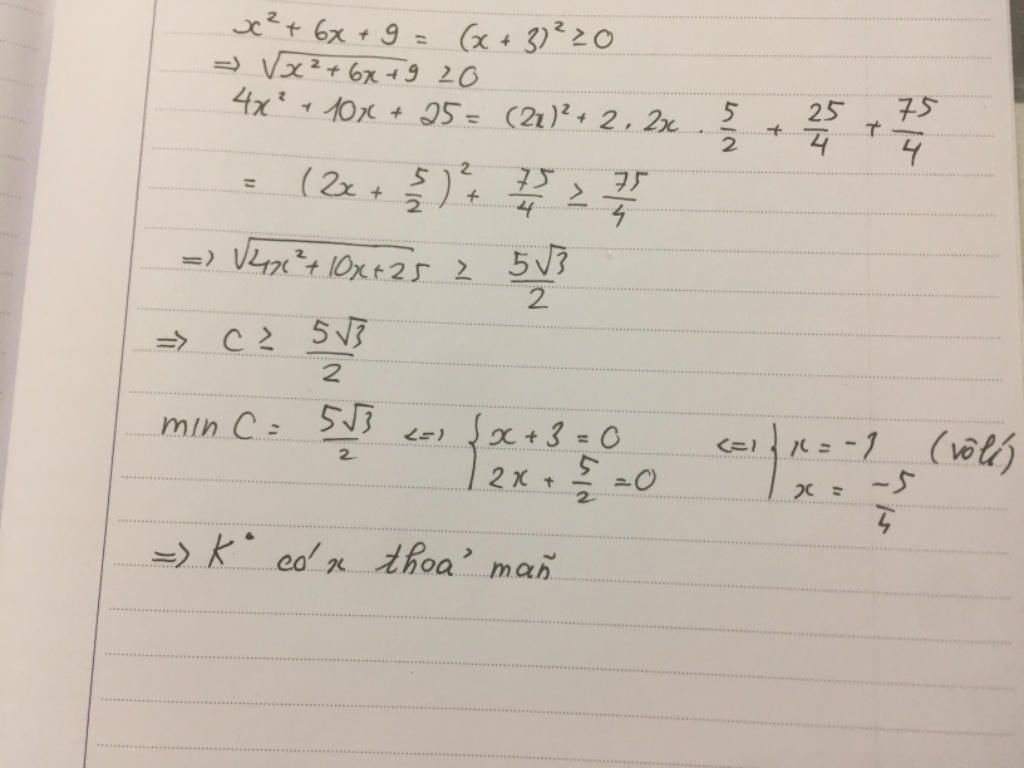 x² + 6x + 9 = (x + 3)² ≥ 0
=> √(x² + 6x + 9) ≥ 0
4x² + 10x + 25 = (2x)² + 2 . 2x . 5/2 + 25/4 + 75/4
= (2x + 5/2)² + 75/4 ≥ 75/4
=> √(4x² + 10x + 25) ≥ 5√3/2
=> C ≥ 5√3/2
min C = 5√3/2 <=> { x + 3 = 0 <=> { x = -1 (vôlí)
2x + 5/2 = 0 x = -5/4
=> K° có x thoả mãn